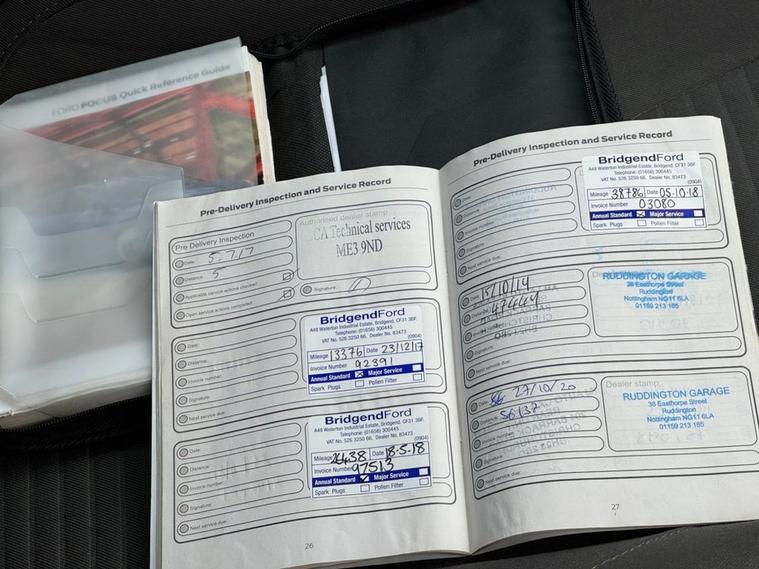 FORD FOCUS Quick Reference Guide
Pre-Delivery Inspection and Service Record
Pre Delivery Inspection
Date: 5.7.17
Distance: 5
Applicable service actions checked
Open service actions completed
Authorised dealer stamp
CA Technical services
ME3 9ND
Signature:
Date:
Distance:
Invoice number:
Signature:
Next service due:
BridgendFord
A48 Waterton Industrial Estate, Bridgend, CF31 3BF.
Telephone: (01656) 300445
VAT No. 526 3250 66. Dealer No. 83473 (0904)
Mileage 13376 Date 23/12/17
Invoice Number 92391
Annual Standard Major Service
Spark Plugs Pollen Filter
Date:
Distance:
Invoice number:
Signature:
Next service due:
BridgendFord
A48 Waterton Industrial Estate, Bridgend, CF31 3BF.
Telephone: (01656) 300445
VAT No. 526 3250 66. Dealer No. 83473 (0904)
Mileage Date 18-5-18
Invoice Number 97513
Annual Standard Major Service
Spark Plugs Pollen Filter
26
Pre-Delivery Inspection and Service Record
Signature:
Next service due:
BridgendFord
A48 Waterton Industrial Estate, Bridgend, CF31 3BF.
Telephone: (01656) 300445
VAT No. 526 3250 66. Dealer No. 83473 (0904)
Mileage 38786 Date 05-10-18
Invoice Number 03080
Annual Standard Major Service
Spark Plugs Pollen Filter
47444
Signature:
Next service due:
RUDDINGTON GARAGE
38 Easthorpe Street
Ruddington
Nottingham NG11 6LA
01159 213 185
Date: 27/10/20
56137
Signature:
Next service due:
Dealer stamp:
RUDDINGTON GARAGE
38 Easthorpe Street
Ruddington
Nottingham NG11 6LA
01159 213 185
27